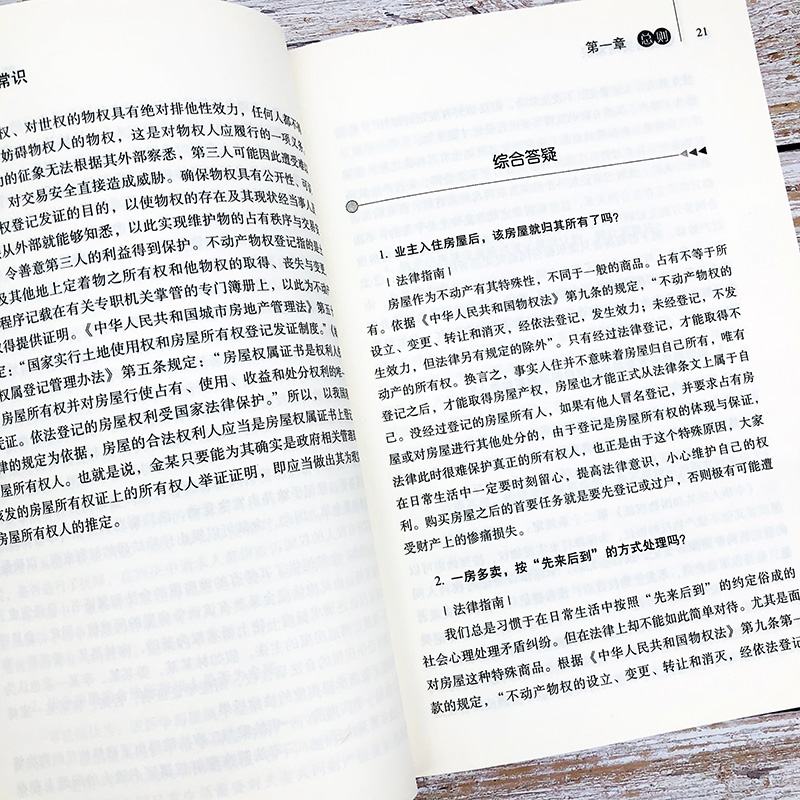 常识
权、对世权的物权具有绝对排他性效力，任何人都不
妨碍物权人的物权，这是对物权人应履行的一项义务
的征象无法根据其外部察悉，第三人可能因此遭受难
对交易安全直接造成威胁。确保物权具有公开性、可
权登记发证的目的，以使物权的存在及其现状经当事人
从外部就能够知悉，以此实现维护物的占有秩序与交易安
令善意第三人的利益得到保护。不动产物权登记指的是
及其他地上定着物之所有权和他物权的取得、丧失与变更
程序记载在有关专职机关掌管的专门簿册上，以此为不动
取得提供证明。《中华人民共和国城市房地产管理法》第五十
定：“国家实行土地使用权和房屋所有权登记发证制度。”《
权属登记管理办法》第五条规定：“房屋权属证书是权利人
房屋所有权并对房屋行使占有、使用、收益和处分权利的唯一
凭证。依法登记的房屋权利受国家法律保护。”所以，以我国
律的规定为依据，房屋的合法权利人应当是房屋权属证书上登记
屋所有权人。也就是说，金某只要能为其确实是政府相关管理
核发的房屋所有权证上的所有权人举证证明，即应当做出其为
房屋所有权人的推定。
第一章 总则 21
综合答疑
1. 业主入住房屋后，该房屋就归其所有了吗？
| 法律指南 |
房屋作为不动产有其特殊性，不同于一般的商品。占有不等于所
有。依据《中华人民共和国物权法》第九条的规定，“不动产物权的
设立、变更、转让和消灭，经依法登记，发生效力；未经登记，不发
生效力，但法律另有规定的除外”。只有经过法律登记，才能取得不
动产的所有权。换言之，事实入住并不意味着房屋归自己所有，唯有
登记之后，才能取得房屋产权，房屋也才能正式从法律条文上属于自
己。没经过登记的房屋所有人，如果有他人冒名登记，并要求占有房
屋或对房屋进行其他处分的，由于登记是房屋所有权的体现与保证，
法律此时很难保护真正的所有权人，也正是由于这个特殊原因，大家
在日常生活中一定要时刻留心，提高法律意识，小心维护自己的权
利。购买房屋之后的首要任务就是要先登记或过户，否则极有可能遭
受财产上的惨痛损失。
2. 一房多卖，按“先来后到”的方式处理吗？
| 法律指南 |
我们总是习惯于在日常生活中按照“先来后到”的约定俗成的
社会心理处理矛盾纠纷。但在法律上却不能如此简单对待。尤其是面
对房屋这种特殊商品。根据《中华人民共和国物权法》第九条第一
款的规定，“不动产物权的设立、变更、转让和消灭，经依法登记